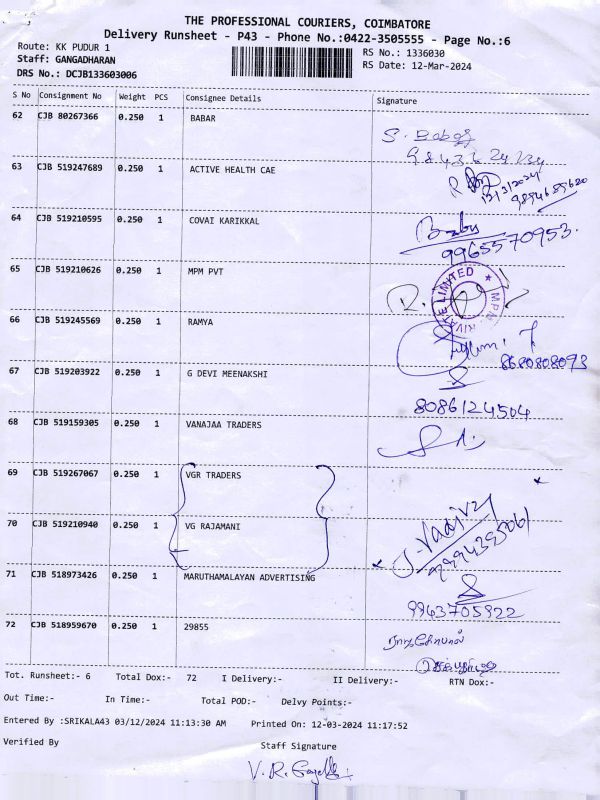 THE PROFESSIONAL COURIERS, COIMBATORE
Delivery Runsheet - P43 - Phone No.:0422-3505555 - Page No.:6
Route: KK PUDUR 1
RS No.: 1336030
Staff: GANGADHARAN
RS Date: 12-Mar-2024
DRS No.: DCJB133603006
S No Consignment No Weight PCS Consignee Details Signature
62 CJB 80267366 0.250 1 BABAR
S. Babar
63 CJB 519247689 0.250 1 ACTIVE HEALTH CAE
13/3/2024
9894685620
64 CJB 519210595 0.250 1 COVAI KARIKKAL
Babu
9965570953.
65 CJB 519210626 0.250 1 MPM PVT
MPM PRIVATE LIMITED
66 CJB 519245569 0.250 1 RAMYA
8680808093
67 CJB 519203922 0.250 1 G DEVI MEENAKSHI
8086124504
68 CJB 519159305 0.250 1 VANAJAA TRADERS
69 CJB 519267067 0.250 1 VGR TRADERS
70 CJB 519210940 0.250 1 VG RAJAMANI
71 CJB 518973426 0.250 1 MARUTHAMALAYAN ADVERTISING
9943705922
72 CJB 518959670 0.250 1 29855
Tot. Runsheet:- 6 Total Dox:- 72 I Delivery:- II Delivery:- RTN Dox:-
Out Time:- In Time:- Total POD:- Delvy Points:-
Entered By :SRIKALA43 03/12/2024 11:13:30 AM Printed On: 12-03-2024 11:17:52
Verified By
Staff Signature